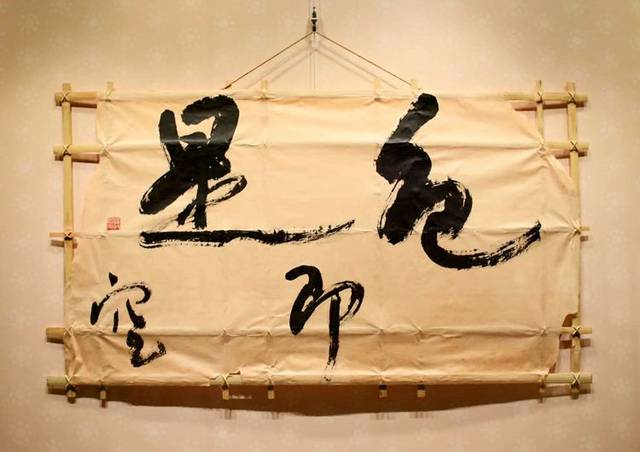 色即是空